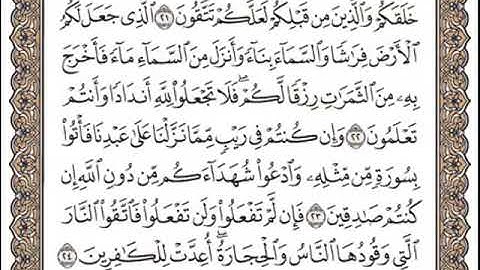 خَلَقَكُمْ وَٱلَّذِينَ مِن قَبْلِكُمْ لَعَلَّكُمْ تَتَّقُونَ ٢١ ٱلَّذِى جَعَلَ لَكُمُ
ٱلْأَرْضَ فِرَٰشًا وَٱلسَّمَآءَ بِنَآءً وَأَنزَلَ مِنَ ٱلسَّمَآءِ مَآءً فَأَخْرَجَ
بِهِۦ مِنَ ٱلثَّمَرَٰتِ رِزْقًا لَّكُمْ ۖ فَلَا تَجْعَلُوا۟ لِلَّهِ أَندَادًا وَأَنتُمْ
تَعْلَمُونَ ٢٢ وَإِن كُنتُمْ فِى رَيْبٍ مِّمَّا نَزَّلْنَا عَلَىٰ عَبْدِنَا فَأْتُوا۟
بِسُورَةٍ مِّن مِّثْلِهِۦ وَٱدْعُوا۟ شُهَدَآءَكُم مِّن دُونِ ٱللَّهِ إِن
كُنتُمْ صَٰدِقِينَ ٢٣ فَإِن لَّمْ تَفْعَلُوا۟ وَلَن تَفْعَلُوا۟ فَٱتَّقُوا۟ ٱلنَّارَ
ٱلَّتِى وَقُودُهَا ٱلنَّاسُ وَٱلْحِجَارَةُ ۖ أُعِدَّتْ لِلْكَٰفِرِينَ ٢٤